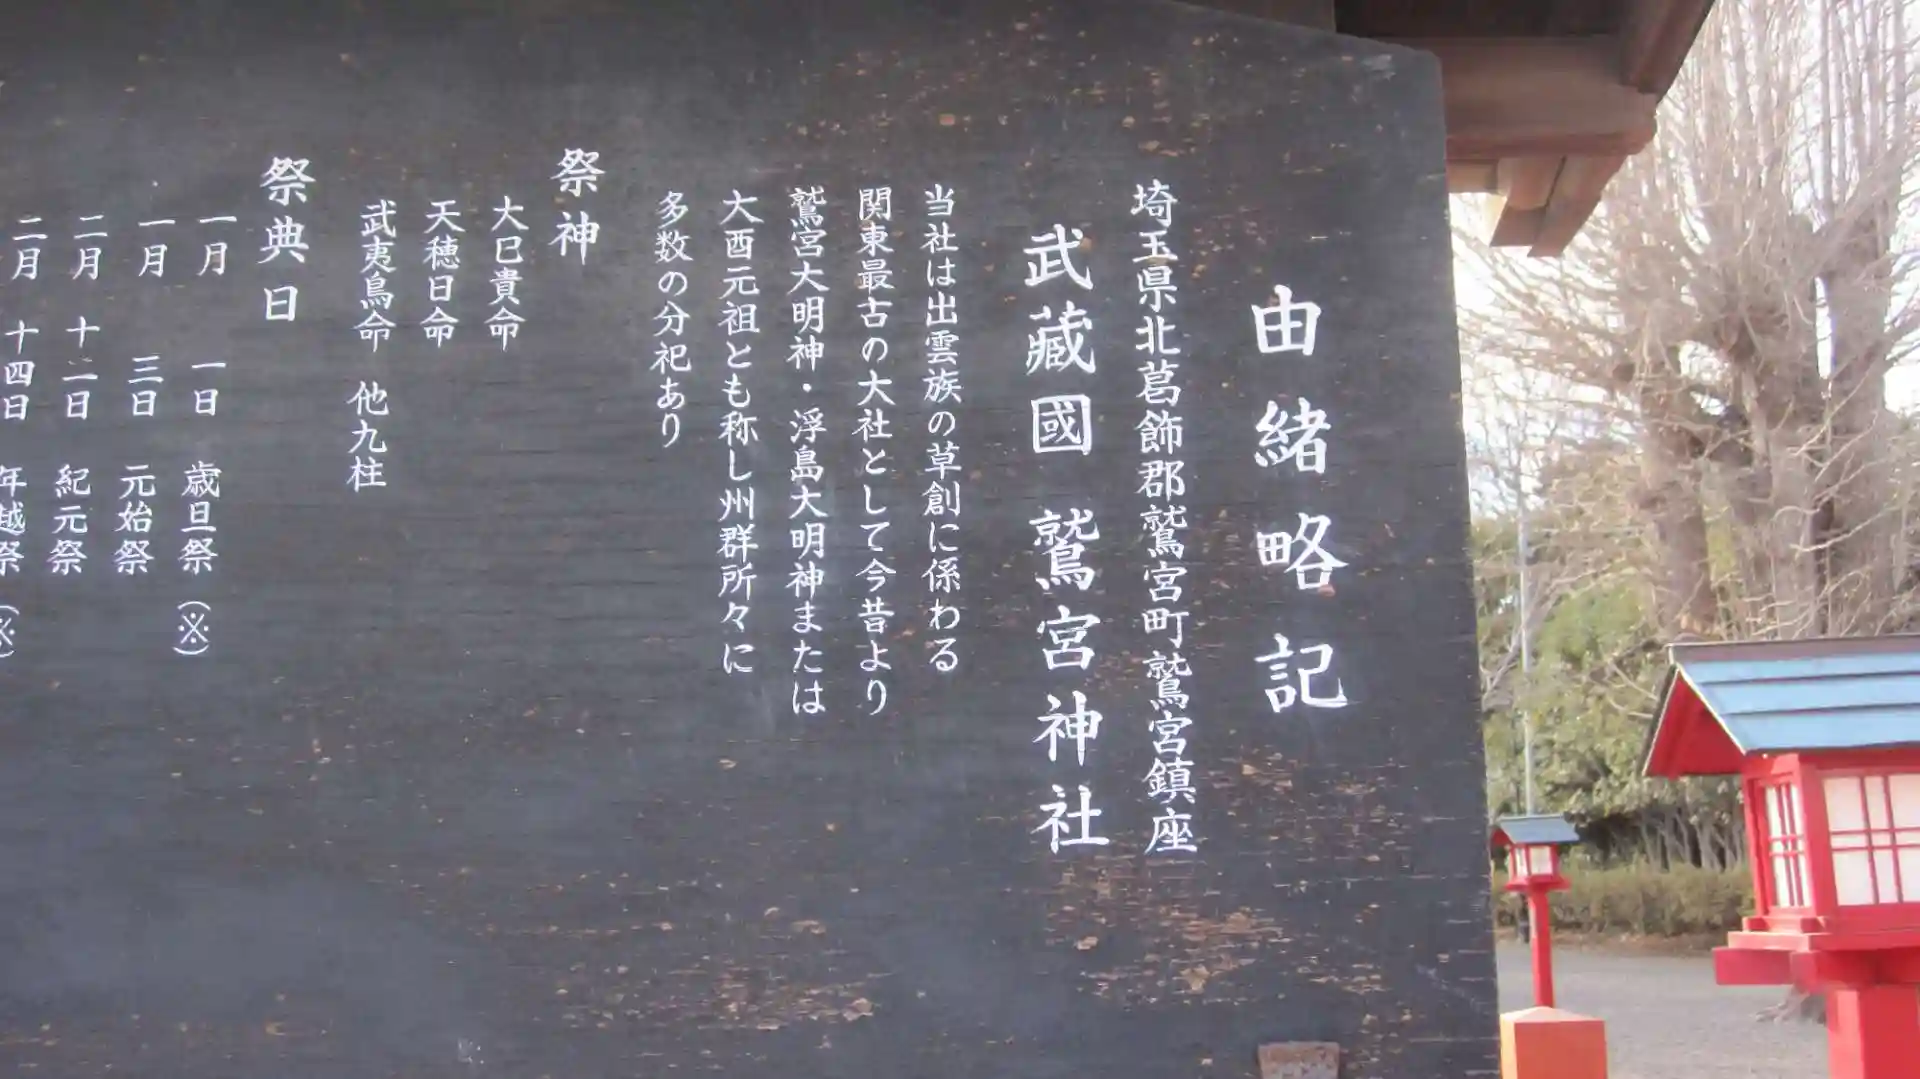 由緒略記
埼玉県北葛飾郡鷲宮町鷲宮鎮座
武蔵國 鷲宮神社
当社は出雲族の草創に係わる
関東最古の大社として今昔より
鷲宮大明神・浮島大明神または
大酉元祖とも称し州群所々に
多数の分祀あり
祭神
大巳貴命
天穂日命
武夷鳥命 他九柱
祭典日
一月 一日 歳旦祭(※)
一月 三日 元始祭
二月 十一日 紀元祭
二月 十四日 年越祭(※)